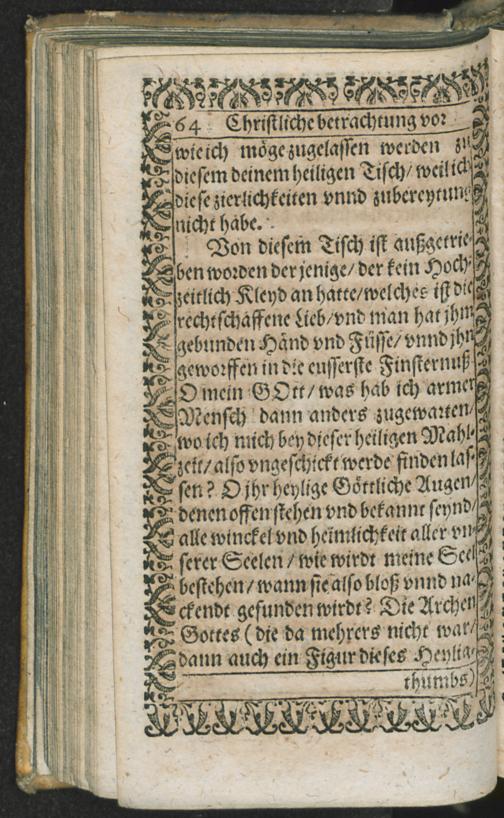 64 Christliche betrachtung vor
wie ich möge zugelassen werden zu
diesem deinem heiligen Tisch/ weil ich
diese zierlichkeiten vnnd zubereytung
nicht habe.
Von diesem Tisch ist außgetrie-
ben worden der jenige/ der kein Hoch-
zeitlich Kleyd an hatte/ welches ist die
rechtschaffene Lieb/ vnd man hat jhm
gebunden Händ vnd Füsse/ vnnd jhn
geworffen in die eusserste Finsternuß
O mein GOtt/ was hab ich armer
Mensch dann anders zugewarten/
wo ich mich bey dieser heiligen Mahl-
zeit/ also vngeschickt werde finden las-
sen? O jhr heylige Göttliche Augen/
denen offen stehen vnd bekannt seynd/
alle winckel vnd heimlichkeit aller vn-
serer Seelen/ wie wirdt meine Seel
bestehen/ wann sie also bloß vnnd na-
ckendt gefunden wirdt? Die Archen
Gottes (die da mehrers nicht war/
dann auch ein Figur dieses Heylig-
thumbs)